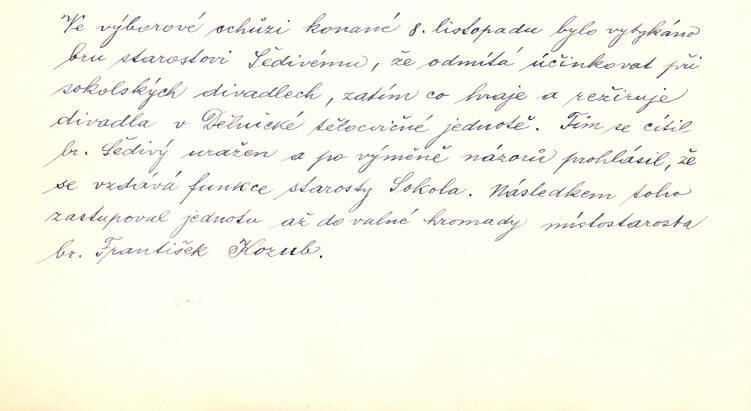 Ve výborové schůzi konané 8. listopadu bylo vytykáno
bru starostovi Šedivému, že odmítá účinkovat při
sokolských divadlech, zatím co hraje a režíruje
divadla v Dělnické tělocvičné jednotě. Tím se cítil
br. Šedivý uražen a po výměně názorů prohlásil, že
se vzdává funkce starosty Sokola. Následkem toho
zastupoval jednotu až do valné hromady místostarosta
br. František Kozub.